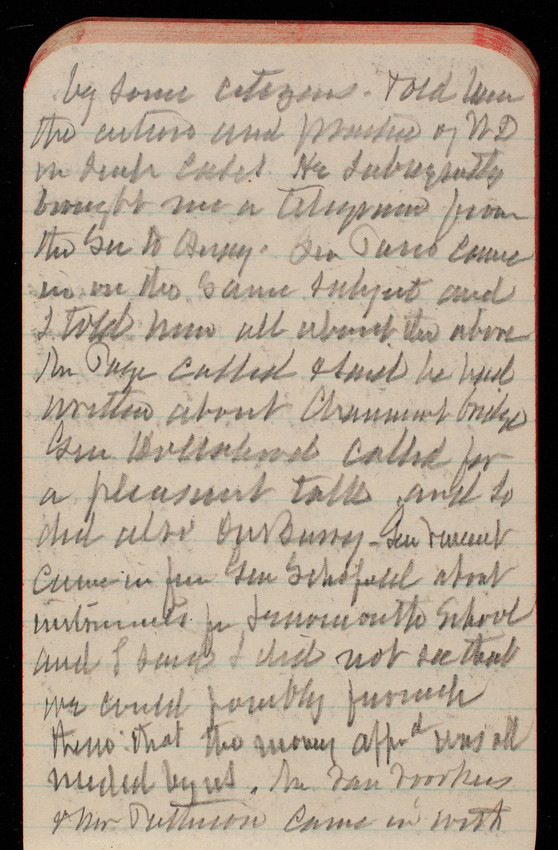 by some citizens. Told him
the actions and practice of WD
in such cases. He subsequently
brought me a telegram from
the Gen to
came
in on the same subject and
I told him all about the above
Mr Page called & said he had
written about bridge
Gen called for
a pleasant talk and so
did also Dr
came in for Gen Schofield about
instruments for School
and I said I did not see that
we could possibly furnish
them that the money app'd was all
needed by us. Mr Van Voorhees
& Mr came in with